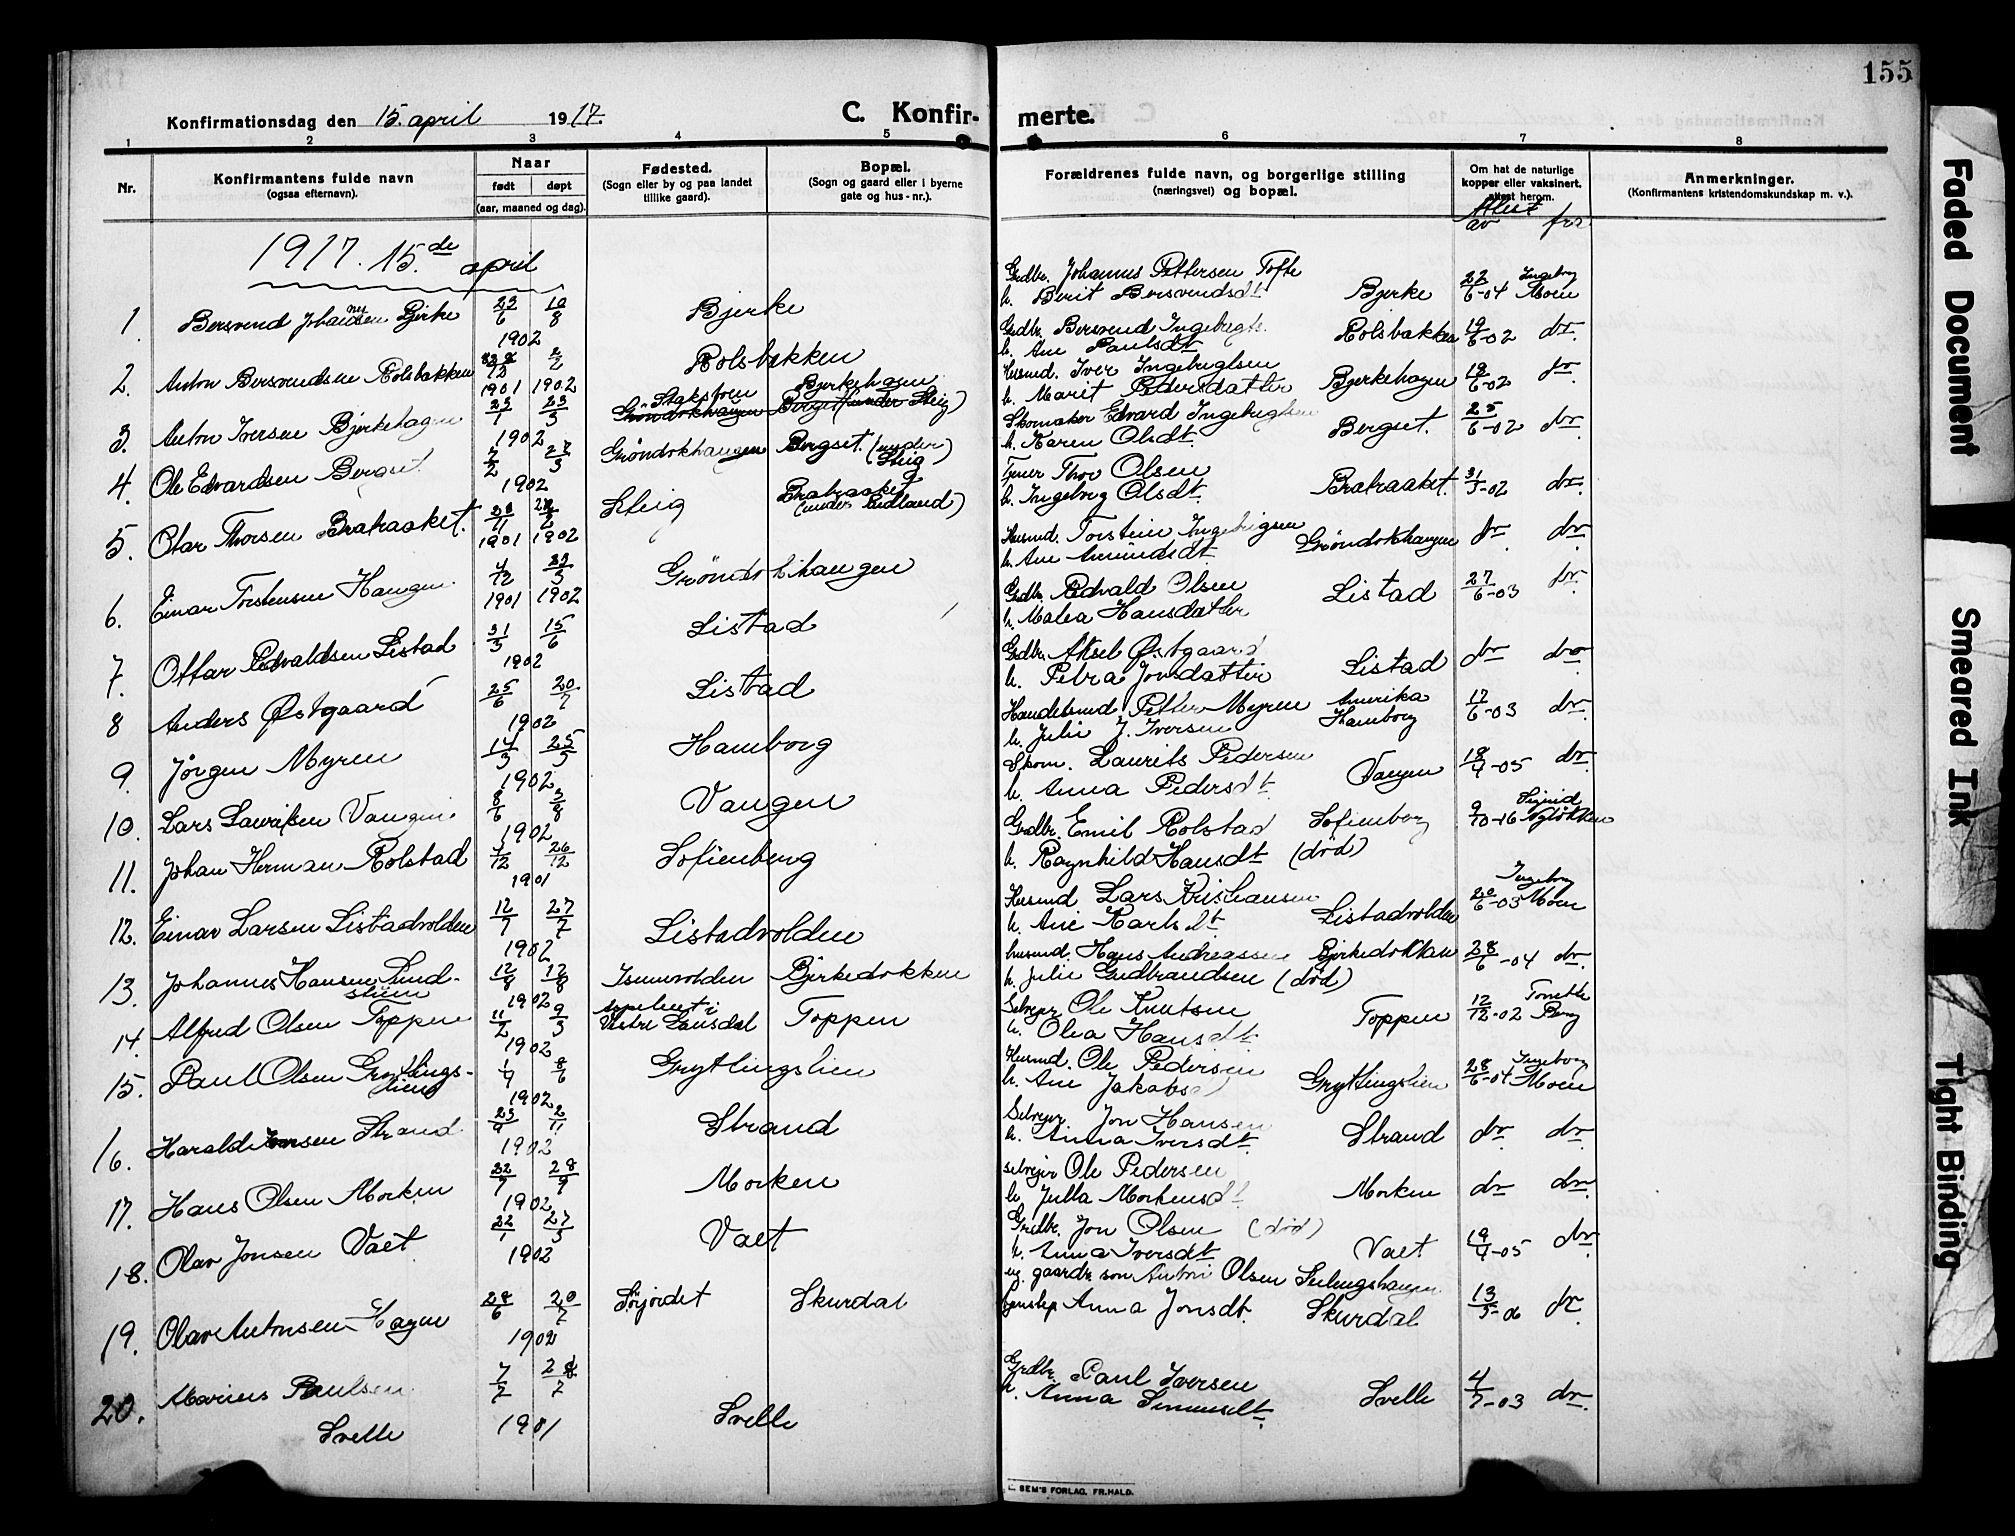 155
Konfirmationsdag den 15. april 1917.
C. Konfir- merte.
1 2 3 4 5 6 7 8
Nr.
Konfirmantens fulde navn
(ogsaa efternavn).
Naar
født døpt
(aar, maaned og dag).
Fødested.
(Sogn eller by og paa landet
tillike gaard).
Bopæl.
(Sogn og gaard eller i byerne
gate og hus-nr.).
Forældrenes fulde navn, og borgerlige stilling
(næringsvei) og bopæl.
Om hat de naturlige
kopper eller vaksinert.
attest herom.
Attest
av fra
Anmerkninger.
(Konfirmantens kristendomskundskap m. v.).
1917. 15.de april
1. Bersvend Johannessen Bjerke 23/6 10/8 1902 Bjerke
Grdbr. Johannes Pettersen Tofte
h. Berit Bersvendsdt. Bjerke 22/6-04 Ingeborg Moen
2. Anton Bersvendsen Rolsbakken 1901 2/2 1902 Rolsbakken
Grdbr. Bersvend Ingebregts.
h. Ane Paulsdt. Rolsbakken 19/6-02 do.
3. Anton Iversen Bjerkehagen 23/1 23/3 1902 Bjerkehagen
Grøndokhaugen Berget (under Steig)
Husmd. Iver Ingebregtsen
h. Marit Pedersdatter Bjerkehagen 19/6-02 do.
4. Ole Edvardsen Bergset 7/2 27/3 1902 Grøndokhaugen Bergset. (under Steig)
Skomaker Edvard Ingebregtsen
h. Karen Olsdt. Bergset. 25/6-02 do.
5. Olav Thorsen Brateaaket. 1901 1902 Steig Brateaaket (under Rudland)
Tjener Thor Olsen
h. Ingeborg Olsdt. Brateaaket. 31/5-02 do.
6. Einar Torstensen Haugen 4/12 1901 23/3 1902 Grøndokhaugen
Husmd. Torstein Ingebrigsen
h. Ane Amundsdt. Grøndokhaugen do do.
7. Ottar Edvaldsen Listad 31/3 15/6 1902 Listad
Grdbr. Edvald Olsen
h. Malea Hansdatter Listad 27/6-03 do.
8 Anders Østgaard 25/6 20/7 1902 Listad
Grdbr. Aksel Østgaard
h. Petra Jonsdatter Listad do do
9. Jørgen Myren 14/3 25/5 1902 Hamborg
Handelsmd Petter Myren Amerika
h. Julie J. Iversen Hamborg 12/6-03 do.
10. Lars Lauritsen Vangen 8/6 3/8 1902 Vangen
Skom. Laurits Pedersen
h. Anna Pedersdt. Vangen 18/4-05 do.
11. Johan Herman Rolstad 4/12 26/12 1901 Sofienberg
Grdbr. Emil Rolstad Sofienberg
h. Ragnhild Hansdt. (død) 9/10-16 Sigrid
12. Einar Larsen Listadvolden 12/7 27/7 1902 Listadvolden
Husmd Lars Kristiansen
h. Ane Karlsdt. Listadvolden 20/6-03 Ingeborg Moen
13. Johannes Hansen Sundstuen 12/8 17/8 1902 Isumvolden Bjerkedokken
husmd. Hans Andreassen Bjerkedokken
h. Julie Gudbrandsen (død) 28/6-04 do.
14. Alfred Olsen Toppen 11/2 9/3 1902 Vestre Gausdal Toppen
Selveier Ole Knutsen
h. Olea Hansdt. Toppen 12/12-02 Berg
15. Paul Olsen Grytlingslien 1/4 8/6 1902 Grytlingslien
Husmd. Ole Pedersen
h. Ane Jakobsd Grytlingslien 28/6-04 Ingeborg Moen
16. Harald Jonsen Strand 23/9 2/11 1902 Strand
Selveier Jon Hansen
h. Anna Iversdt. Strand do do.
17. Hans Olsen Morken 22/7 28/9 1902 Morken
selveier Ole Pedersen
h. Julla Mortensdt Morken do do.
18. Olav Jonsen Vaet 22/1 27/3 1902 Vaet
Grdbr. Jon Olsen (død)
h. Anna Iversdt. Vaet 19/4-05 do.
19. Olav Antonsen Hagen 28/6 20/7 1902 Skurdal
ug. gaardbr. søn Anton Olsen
Anna Jonsdt. Skurdal 13/5-06 do.
20. Marius Paulsen Svelle 7/7 28/7 1901 Svelle
Grdbr. Paul Iversen
h. Anna Simensdt. Svelle 4/7-03 do.
SEM'S FORLAG. FR.HALD.
Faded Document
Smeared Ink
Tight Binding